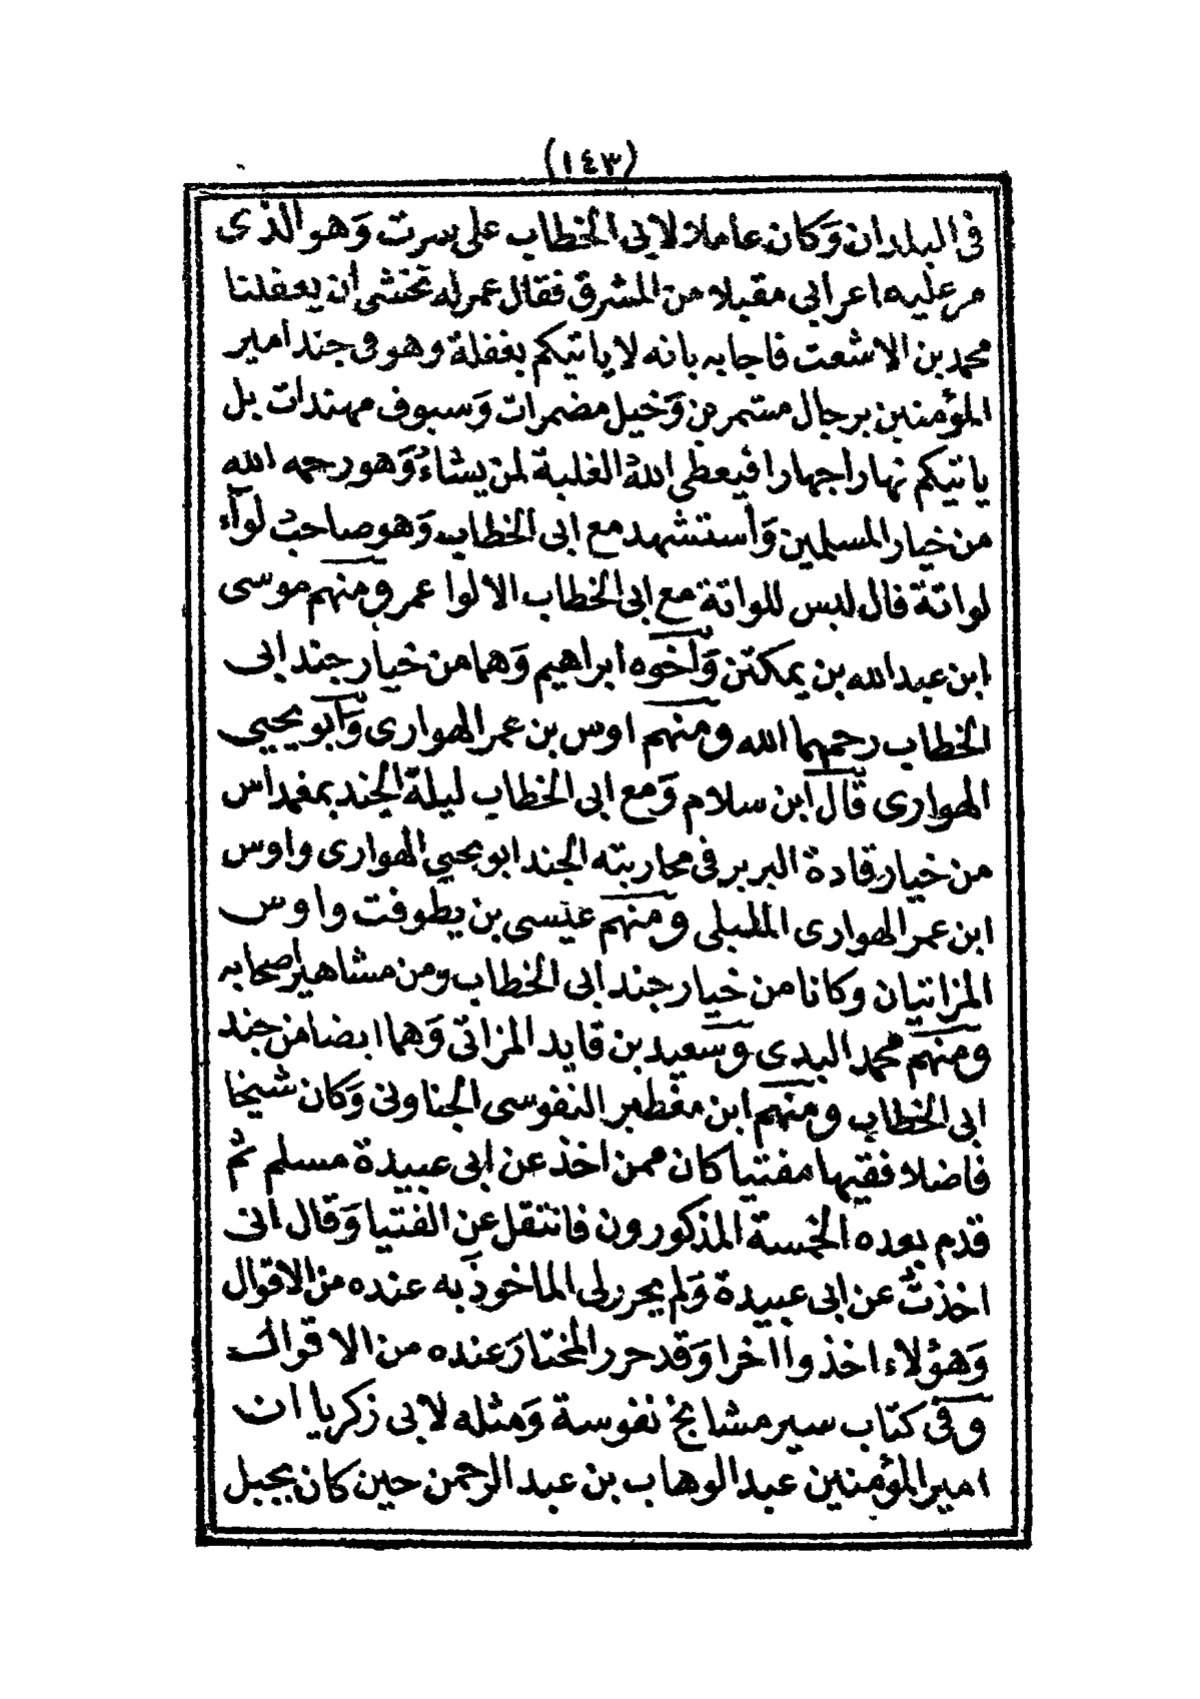 (١٤٣)
فى البلدان وَكان عاملا لابى الخطاب على سرت وَهو الذى
مر عليه اعرابى مقبلا من المشرق فقال عمر له تخشى أن يغفلنا
محمد بن الاشعت فاجابه بانه لا ياتيكم بغفلة وهو فى جند امير
المؤمنين برجال مستمرين وَخيل مضمرات وَسيوف مهندات بل
ياتيكم نهارا جهارا فيعطى اللهُ الغلبة لمن يشاءُ وَهو رحمه الله
من خيار المسلمين وَاستشهد مع ابى الخطاب وَهو صاحبُ لوآء
لواتة قال ليس للواتة مع ابى الخطاب الا لوا عمر ومنهم موسى
ابن عبد الله بن يمكتن وَاخوه ابراهيم وَهما من خيار جند ابى
الخطاب رحمهما الله ومنهم اوس بن عمر الهوارى وَابو يحيى
الهوارى قال ابن سلام وَمع ابى الخطاب ليلة الجند بمغمداس
من خيار قادة البربر فى محاربته الجند ابو يحيى الهوارى واوس
ابن عمر الهوارى المليلى ومنهم عيسى بن يطوفت واوس
المزاتيان وكانا من خيار جند ابى الخطاب ومن مشاهير اصحابه
ومنهم محمد البدى وَسعيد بن قايد المزاتى وَهما ايضا من جند
ابى الخطاب ومنهم ابن مغطير النفوسى الجناونى وَكان شيخا
فاضلا فقيها مفتيا كان ممن اخذ عن ابى عبيدة مسلم ثم
قدم بعده الخمسة المذكورون فانتقل عن الفتيا وَقال انى
اخذتُ عن ابى عبيدة وَلم يحرر لى الماخوذ به عنده من الاقوال
وَهؤلاء اخذوا اخرا وَقد حرر المختار عنده من الاقوال
وفى كتاب سير مشايخ نفوسة وَمثله لابى زكريا ان
امير المؤمنين عبد الوهاب بن عبد الرحمن حين كان بجبل